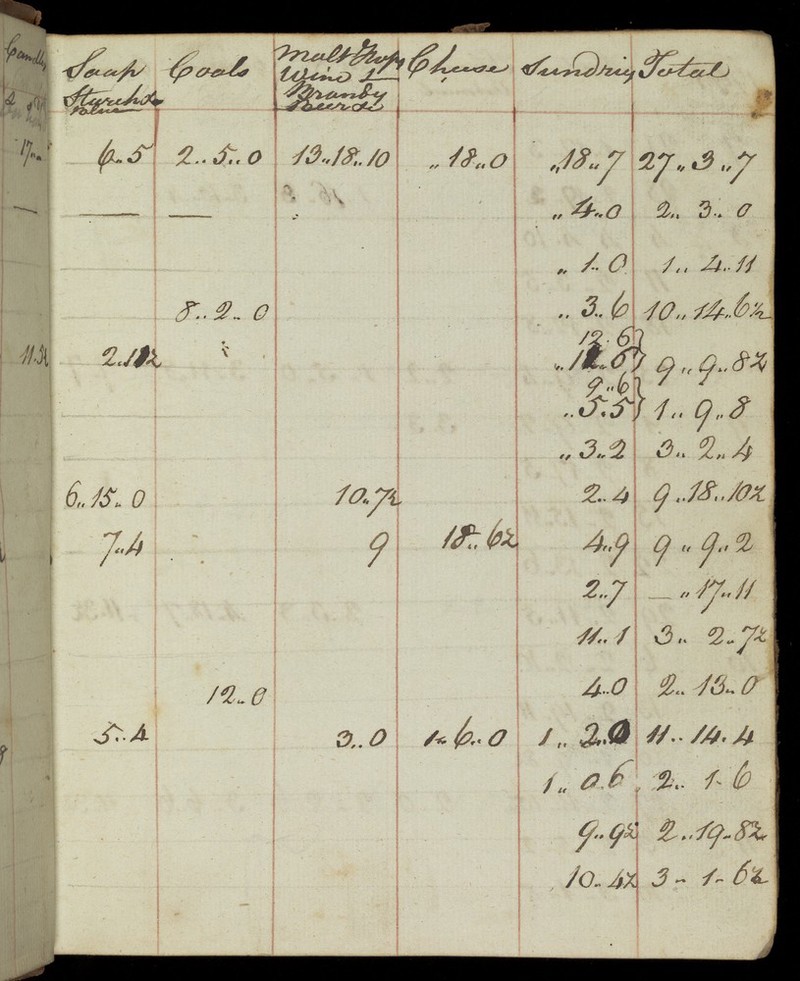 Candles
Soap Coals Malt Hops Cheese Sundries Total
Starch & Wine &
Blue Brandy
17
6..5 2..5..0 13..18..10 ..18..0 ..18..7 27..3..7
— — ..4..0 2..3..0
..1..0 1..4..11
8..2..0 ..3..6 10..14..6½
12.6
2..1 ..6 9..9..8½
9..6
..5.5 1..9..8
..3..2 3..2..4
6..15..0 10..7½ 2..4 9..18..10½
7..4 9 18..6½ 4..9 9..9..2
2..7 —..17..11
11..1 3..2..7½
12..0 4..0 2..13..0
5..4 3..0 1..6..0 1..2..0 11..14..4
1..0.6 2..1..6
9..9½ 2..19..8½
10..4½ 3..1..6½